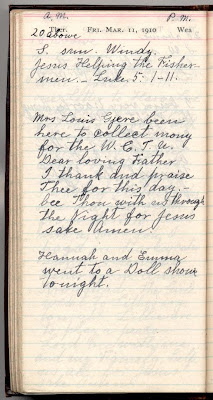 A.M. P.M.
Ther. FRI. MAR. 11, 1910 Wea
20 above
S. sun. Windy.
Jesus Helping the Fisher-
men. - Luke. 5: 1-11.
Mrs. Louis been
here to collect mony
for the W.C.T.U.
Dear loving Father
I thank and praise
Thee for this day. -
bee Thou with us through
the Night for Jesus
sake Amen.
Hannah and Emma
went to a Doll show
tonight.